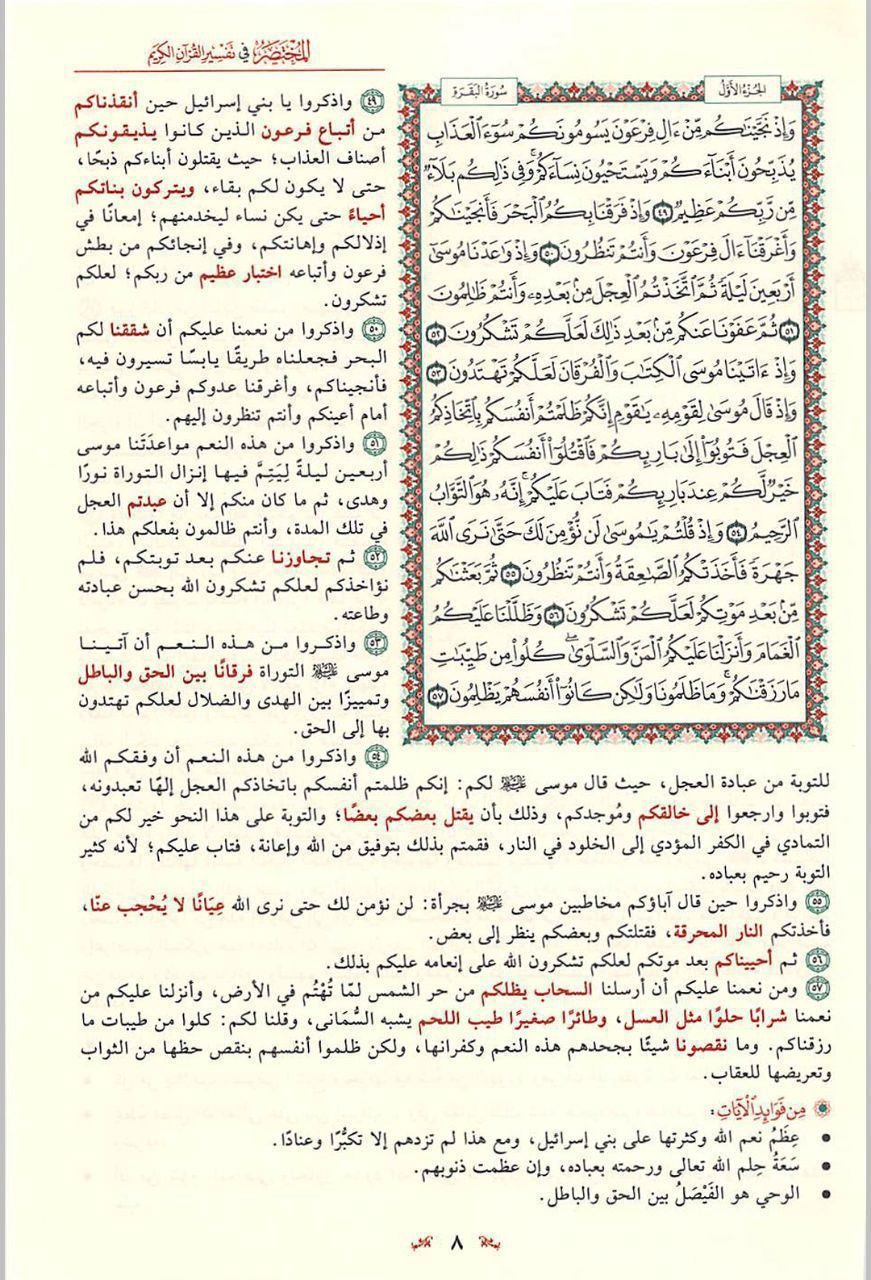 المختصر في تفسير القرآن الكريم
الجزء الأول
سورة البقرة
وَإِذْ نَجَّيْنَٰكُم مِّنْ ءَالِ فِرْعَوْنَ يَسُومُونَكُمْ سُوٓءَ ٱلْعَذَابِ
يُذَبِّحُونَ أَبْنَآءَكُمْ وَيَسْتَحْيُونَ نِسَآءَكُمْ ۚ وَفِى ذَٰلِكُم بَلَآءٌ
مِّن رَّبِّكُمْ عَظِيمٌ ٤٩ وَإِذْ فَرَقْنَا بِكُمُ ٱلْبَحْرَ فَأَنجَيْنَٰكُمْ
وَأَغْرَقْنَآ ءَالَ فِرْعَوْنَ وَأَنتُمْ تَنظُرُونَ ٥٠ وَإِذْ وَٰعَدْنَا مُوسَىٰٓ
أَرْبَعِينَ لَيْلَةً ثُمَّ ٱتَّخَذْتُمُ ٱلْعِجْلَ مِنۢ بَعْدِهِۦ وَأَنتُمْ ظَٰلِمُونَ
٥١ ثُمَّ عَفَوْنَا عَنكُم مِّنۢ بَعْدِ ذَٰلِكَ لَعَلَّكُمْ تَشْكُرُونَ ٥٢
وَإِذْ ءَاتَيْنَا مُوسَى ٱلْكِتَٰبَ وَٱلْفُرْقَانَ لَعَلَّكُمْ تَهْتَدُونَ ٥٣
وَإِذْ قَالَ مُوسَىٰ لِقَوْمِهِۦ يَٰقَوْمِ إِنَّكُمْ ظَلَمْتُمْ أَنفُسَكُم بِٱتِّخَاذِكُمُ
ٱلْعِجْلَ فَتُوبُوٓا۟ إِلَىٰ بَارِئِكُمْ فَٱقْتُلُوٓا۟ أَنفُسَكُمْ ذَٰلِكُمْ
خَيْرٌ لَّكُمْ عِندَ بَارِئِكُمْ فَتَابَ عَلَيْكُمْ ۚ إِنَّهُۥ هُوَ ٱلتَّوَّابُ
ٱلرَّحِيمُ ٥٤ وَإِذْ قُلْتُمْ يَٰمُوسَىٰ لَن نُّؤْمِنَ لَكَ حَتَّىٰ نَرَى ٱللَّهَ
جَهْرَةً فَأَخَذَتْكُمُ ٱلصَّٰعِقَةُ وَأَنتُمْ تَنظُرُونَ ٥٥ ثُمَّ بَعَثْنَٰكُم
مِّنۢ بَعْدِ مَوْتِكُمْ لَعَلَّكُمْ تَشْكُرُونَ ٥٦ وَظَلَّلْنَا عَلَيْكُمُ
ٱلْغَمَامَ وَأَنزَلْنَا عَلَيْكُمُ ٱلْمَنَّ وَٱلسَّلْوَىٰ ۖ كُلُوا۟ مِن طَيِّبَٰتِ
مَا رَزَقْنَٰكُمْ ۖ وَمَا ظَلَمُونَا وَلَٰكِن كَانُوٓا۟ أَنفُسَهُمْ يَظْلِمُونَ ٥٧
٤٩ واذكروا يا بني إسرائيل حين أنقذناكم
من أتباع فرعون الذين كانوا يذيقونكم
أصناف العذاب؛ حيث يقتلون أبناءكم ذبحًا،
حتى لا يكون لكم بقاء، ويتركون بناتكم
أحياءً حتى يكن نساء ليخدمنهم؛ إمعانًا في
إذلالكم وإهانتكم، وفي إنجائكم من بطش
فرعون وأتباعه اختبار عظيم من ربكم؛ لعلكم
تشكرون.
٥٠ واذكروا من نعمنا عليكم أن شققنا لكم
البحر فجعلناه طريقًا يابسًا تسيرون فيه،
فأنجيناكم، وأغرقنا عدوكم فرعون وأتباعه
أمام أعينكم وأنتم تنظرون إليهم.
٥١ واذكروا من هذه النعم مواعدَتَنا موسى
أربعين ليلةً لِيَتِمَّ فيها إنزال التوراة نورًا
وهدى، ثم ما كان منكم إلا أن عبدتم العجل
في تلك المدة، وأنتم ظالمون بفعلكم هذا.
٥٢ ثم تجاوزنا عنكم بعد توبتكم، فلم
نؤاخذكم لعلكم تشكرون الله بحسن عبادته
وطاعته.
٥٣ واذكروا من هذه النعم أن آتينا
موسى ﷺ التوراة فرقانًا بين الحق والباطل
وتمييزًا بين الهدى والضلال لعلكم تهتدون
بها إلى الحق.
٥٤ واذكروا من هذه النعم أن وفقكم الله
للتوبة من عبادة العجل، حيث قال موسى ﷺ لكم: إنكم ظلمتم أنفسكم باتخاذكم العجل إلهًا تعبدونه،
فتوبوا وارجعوا إلى خالقكم ومُوجدكم، وذلك بأن يقتل بعضكم بعضًا؛ والتوبة على هذا النحو خير لكم من
التمادي في الكفر المؤدي إلى الخلود في النار، فقمتم بذلك بتوفيق من الله وإعانة، فتاب عليكم؛ لأنه كثير
التوبة رحيم بعباده.
٥٥ واذكروا حين قال آباؤكم مخاطبين موسى ﷺ بجرأة: لن نؤمن لك حتى نرى الله عِيَانًا لا يُحْجب عنّا،
فأخذتكم النار المحرقة، فقتلتكم وبعضكم ينظر إلى بعض.
٥٦ ثم أحييناكم بعد موتكم لعلكم تشكرون الله على إنعامه عليكم بذلك.
٥٧ ومن نعمنا عليكم أن أرسلنا السحاب يظلكم من حر الشمس لمّا تُهْتُم في الأرض، وأنزلنا عليكم من
نعمنا شرابًا حلوًا مثل العسل، وطائرًا صغيرًا طيب اللحم يشبه السُّمَانى، وقلنا لكم: كلوا من طيبات ما
رزقناكم. وما نقصونا شيئًا بجحدهم هذه النعم وكفرانها، ولكن ظلموا أنفسهم بنقص حظها من الثواب
وتعريضها للعقاب.
من فوائد الآيات:
• عِظَمُ نعم الله وكثرتها على بني إسرائيل، ومع هذا لم تزدهم إلا تكبُّرًا وعنادًا.
• سَعَةُ حِلم الله تعالى ورحمته بعباده، وإن عظمت ذنوبهم.
• الوحي هو الفَيْصَلُ بين الحق والباطل.
٨